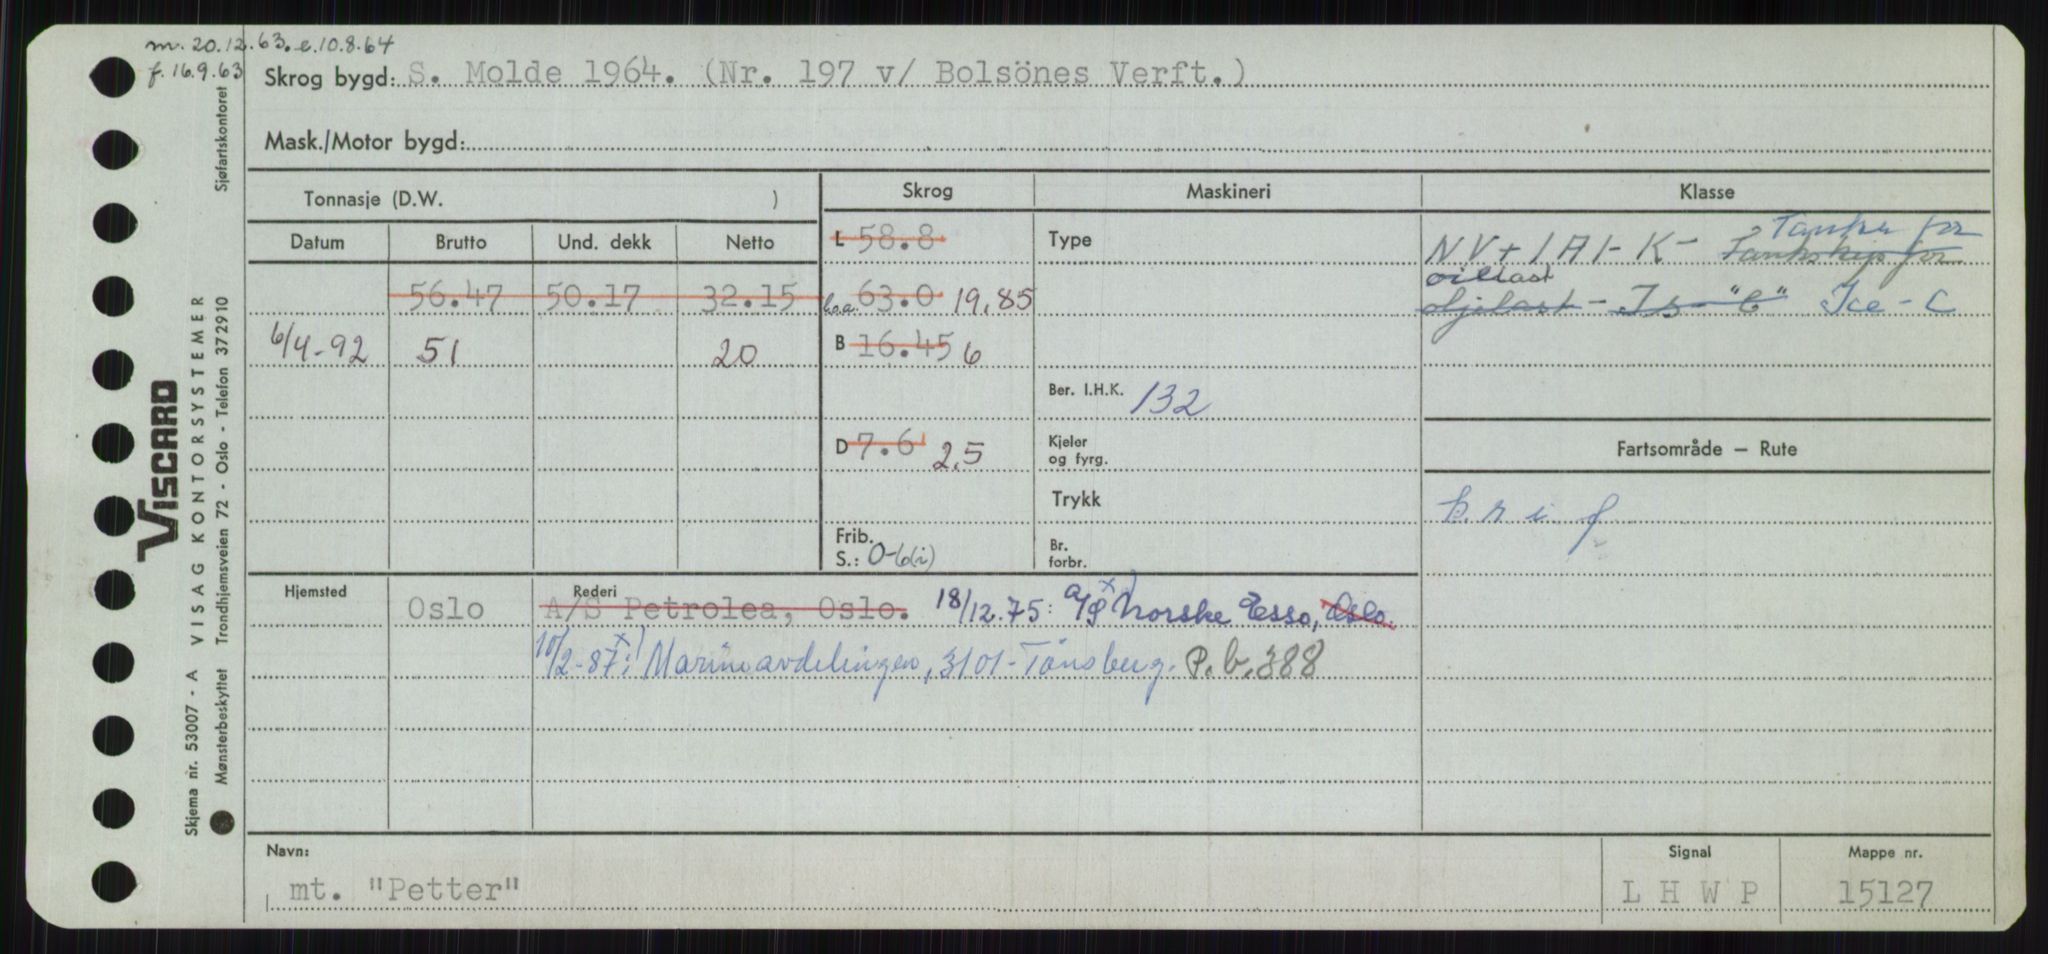 m. 20.12.63. e. 10.8.64
f. 16.9.63
Skrog bygd: S. Molde 1964. (Nr. 197 v/ Bolsönes Verft.)
Mask./Motor bygd:
Tonnasje (D.W. )
Skrog
Maskineri
Klasse
Datum
Brutto
Und. dekk
Netto
56.47 50.17 32.15
6/4-92 51 20
L 58.8
l.o.a. 63.0 19,85
B 16.45 6
D 7.6 2,5
Frib.
S.: 0-6(i)
Type
Ber. I.H.K. 132
Kjeler
og fyrg.
Trykk
Br.
forbr.
Tanker for
NV+1A1-K- Tankskip for
oillast
oljelast - Is-"C" Ice-C
Fartsområde — Rute
Hjemsted
Oslo
Rederi
A/S Petrolea, Oslo. 18/12.75: A/S x) Norske Esso, Oslo.
10/2-87: x) Marineavdelingen, 3101-Tønsberg. P.b. 388
Navn:
mt. "Petter"
Signal
L H W P
Mappe nr.
15127
Sjøfartskontoret
VISCARD
VISAG KONTORSYSTEMER
Trondhjemsveien 72 - Oslo - Telefon 372910
Skjema nr. 53007 - A
Mønsterbeskyttet